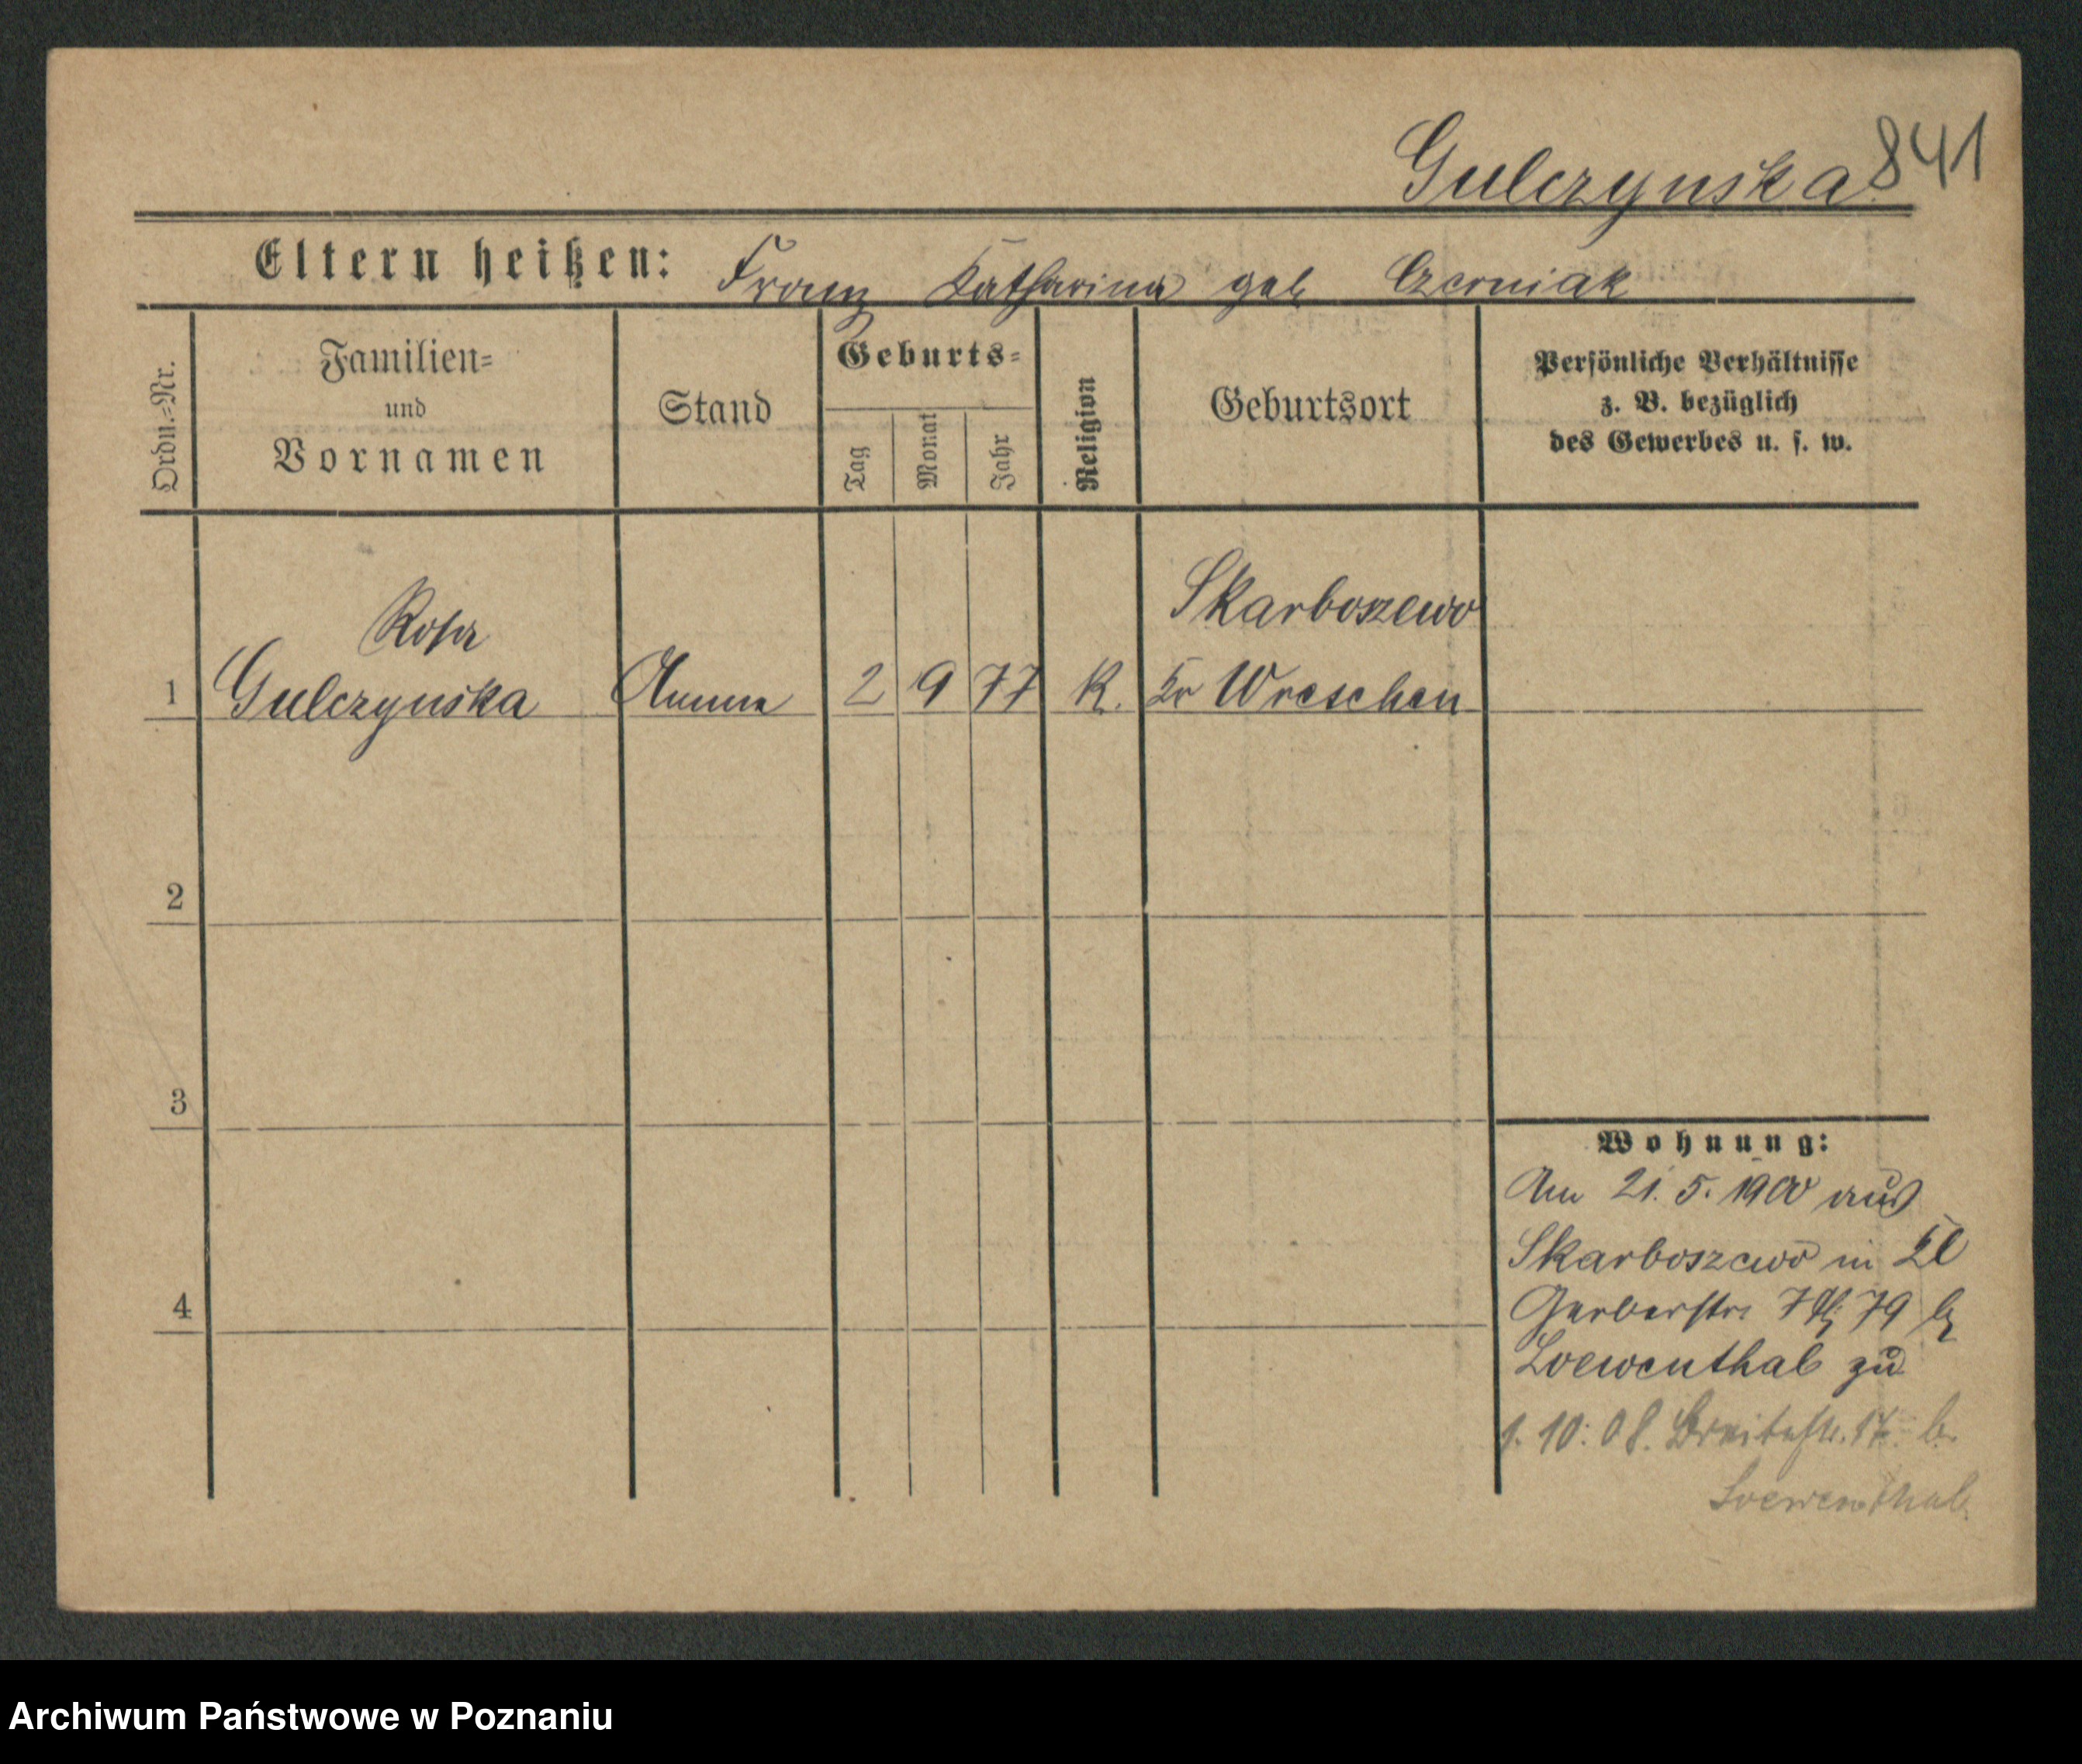 841
Gulczynska
Eltern heißen: Franz Katharina geb Czerniak
Ordn.=Nr.
Familien=
und
Vornamen
Stand
Geburts=
Tag
Monat
Jahr
Religion
Geburtsort
Persönliche Verhältnisse
z. B. bezüglich
des Gewerbes u. s. w.
Rosa Skarboszewo
1 Gulczynska Amme 2 9 77 K. Kr Wreschen
2
3
4
Wohnung:
Am 21. 5. 1900 aus
Skarboszewo in Kl
Gerberstr. 79 b
Loewenthal zu
1. 10. 08. Breitestr. 17 b.
Loewenthal.
Archiwum Państwowe w Poznaniu